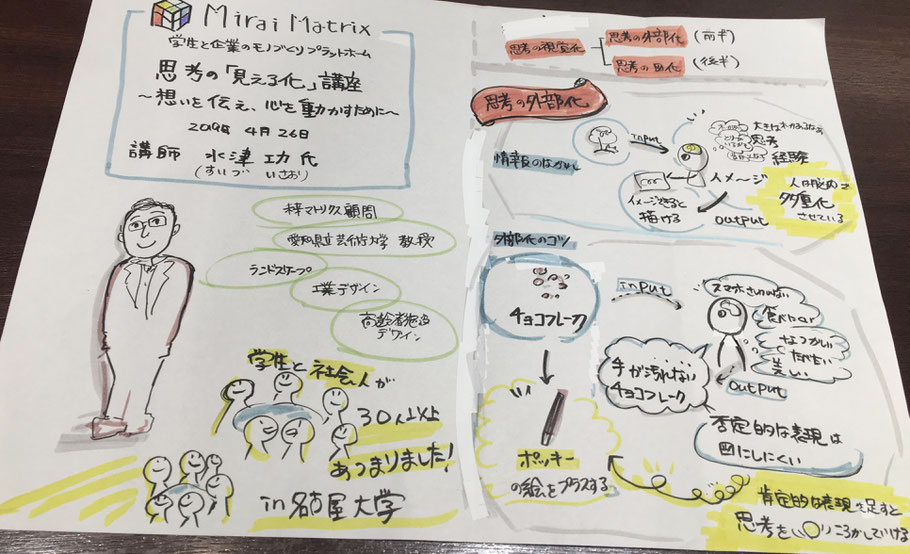 Mirai Matrix
学生と企業のモノづくりプラットホーム
思考の「見える化」講座
〜想いを伝え、心を動かすために〜
2019年 4月26日
講師 水津 功 氏
(すいづ いさお)
梓マトリクス顧問
愛知県立芸術大学 教授
ランドスケープ
工業デザイン
高齢者施設
デザイン
学生と社会人が
30人以上
あつまりました!
in 名古屋大学
思考の視覚化
思考の外部化 (前半)
思考の図化 (後半)
思考の外部化
情報のながれ
input
思考
経験
イメージ
イメージできると
描ける
output
人は脳内で
多重化
させている
外部化のコツ
チョコフレーク
input
スマホさわれない
食べにくい
なつかしい
たべたい
美しい
手が汚れない
チョコフレーク
output
否定的な表現は
図にしにくい
ポッキー
の絵をプラスする
肯定的な表現を足すと
思考を
ころがしていける